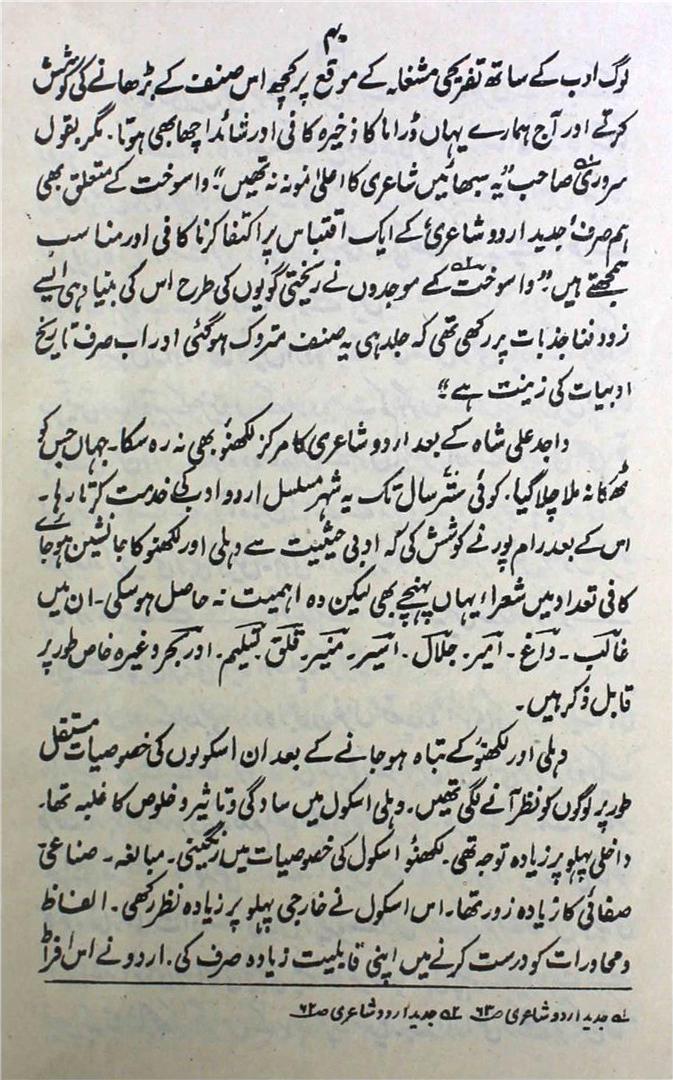 ۴۰
لوگ ادب کے ساتھ تفریحی مشغلہ کے موقع پر کچھ اس صنف کے بڑھانے کی کوشش
کرتے اور آج ہمارے یہاں ڈراما کا ذخیرہ کافی اور شائد اچھا بھی ہوتا۔ مگر بقول
سروری۱؎ صاحب "یہ سبھائیں شاعری کا اعلیٰ نمونہ نہ تھیں"۔ واسوخت کے متعلق بھی
ہم صرف 'جدید اردو شاعری' کے ایک اقتباس پر اکتفا کرنا کافی اور مناسب
سمجھتے ہیں۔ "واسوخت۲؎ کے موجدوں نے ریختی گویوں کی طرح اس کی بنیاد ہی ایسے
زود فنا جذبات پر رکھی تھی کہ جلد ہی یہ صنف متروک ہو گئی اور اب صرف تاریخ
ادبیات کی زینت ہے"
واجد علی شاہ کے بعد اردو شاعری کا مرکز لکھنؤ بھی نہ رہ سکا۔ جہاں جس کو
ٹھکانہ ملا چلا گیا۔ کوئی ستّر سال تک یہ شہر مسلسل اردو ادب کی خدمت کرتا رہا۔
اس کے بعد رام پور نے کوشش کی کہ ادبی حیثیت سے دہلی اور لکھنؤ کا جانشین ہو جائے
کافی تعداد میں شعراء یہاں پہنچے بھی لیکن وہ اہمیت نہ حاصل ہو سکی۔ ان میں
غالب۔ داغ۔ امیر۔ جلال۔ اسیر۔ منیر۔ قلق۔ تسلیم۔ اور بحر وغیرہ خاص طور پر
قابل ذکر ہیں۔
دہلی اور لکھنؤ کے تباہ ہو جانے کے بعد ان اسکولوں کی خصوصیات مستقل
طور پر لوگوں کو نظر آنے لگی تھیں۔ دہلی اسکول میں سادگی و تاثیر و خلوص کا غلبہ تھا۔
داخلی پہلو پر زیادہ توجہ تھی۔ لکھنؤ اسکول کی خصوصیات میں رنگینی۔ مبالغہ۔ صناعی
صفائی کا زیادہ زور تھا۔ اس اسکول نے خارجی پہلو پر زیادہ نظر رکھی۔ الفاظ
و محاورات کو درست کرنے میں اپنی قابلیت زیادہ صرف کی۔ اردو نے اس افراط
۱؎ جدید اردو شاعری ص۶۳ ۲؎ جدید اردو شاعری ص۶۲